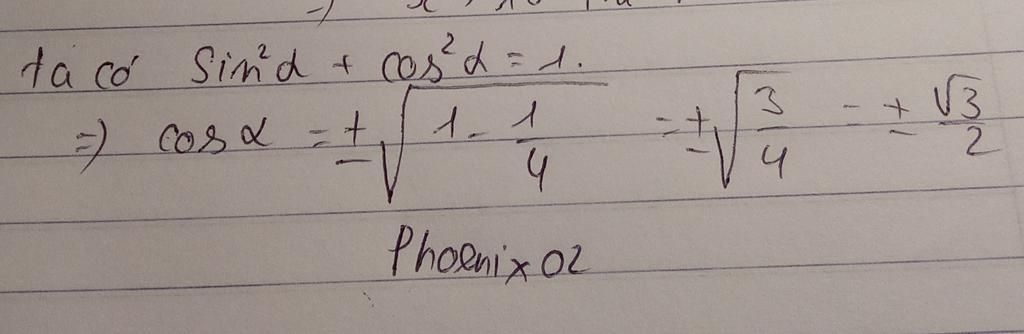 ta có Sin²α + cos²α = 1.
=) cosα = ± √(1 - 1/4) = ± √(3/4) = ± √3/2
Phoenix02